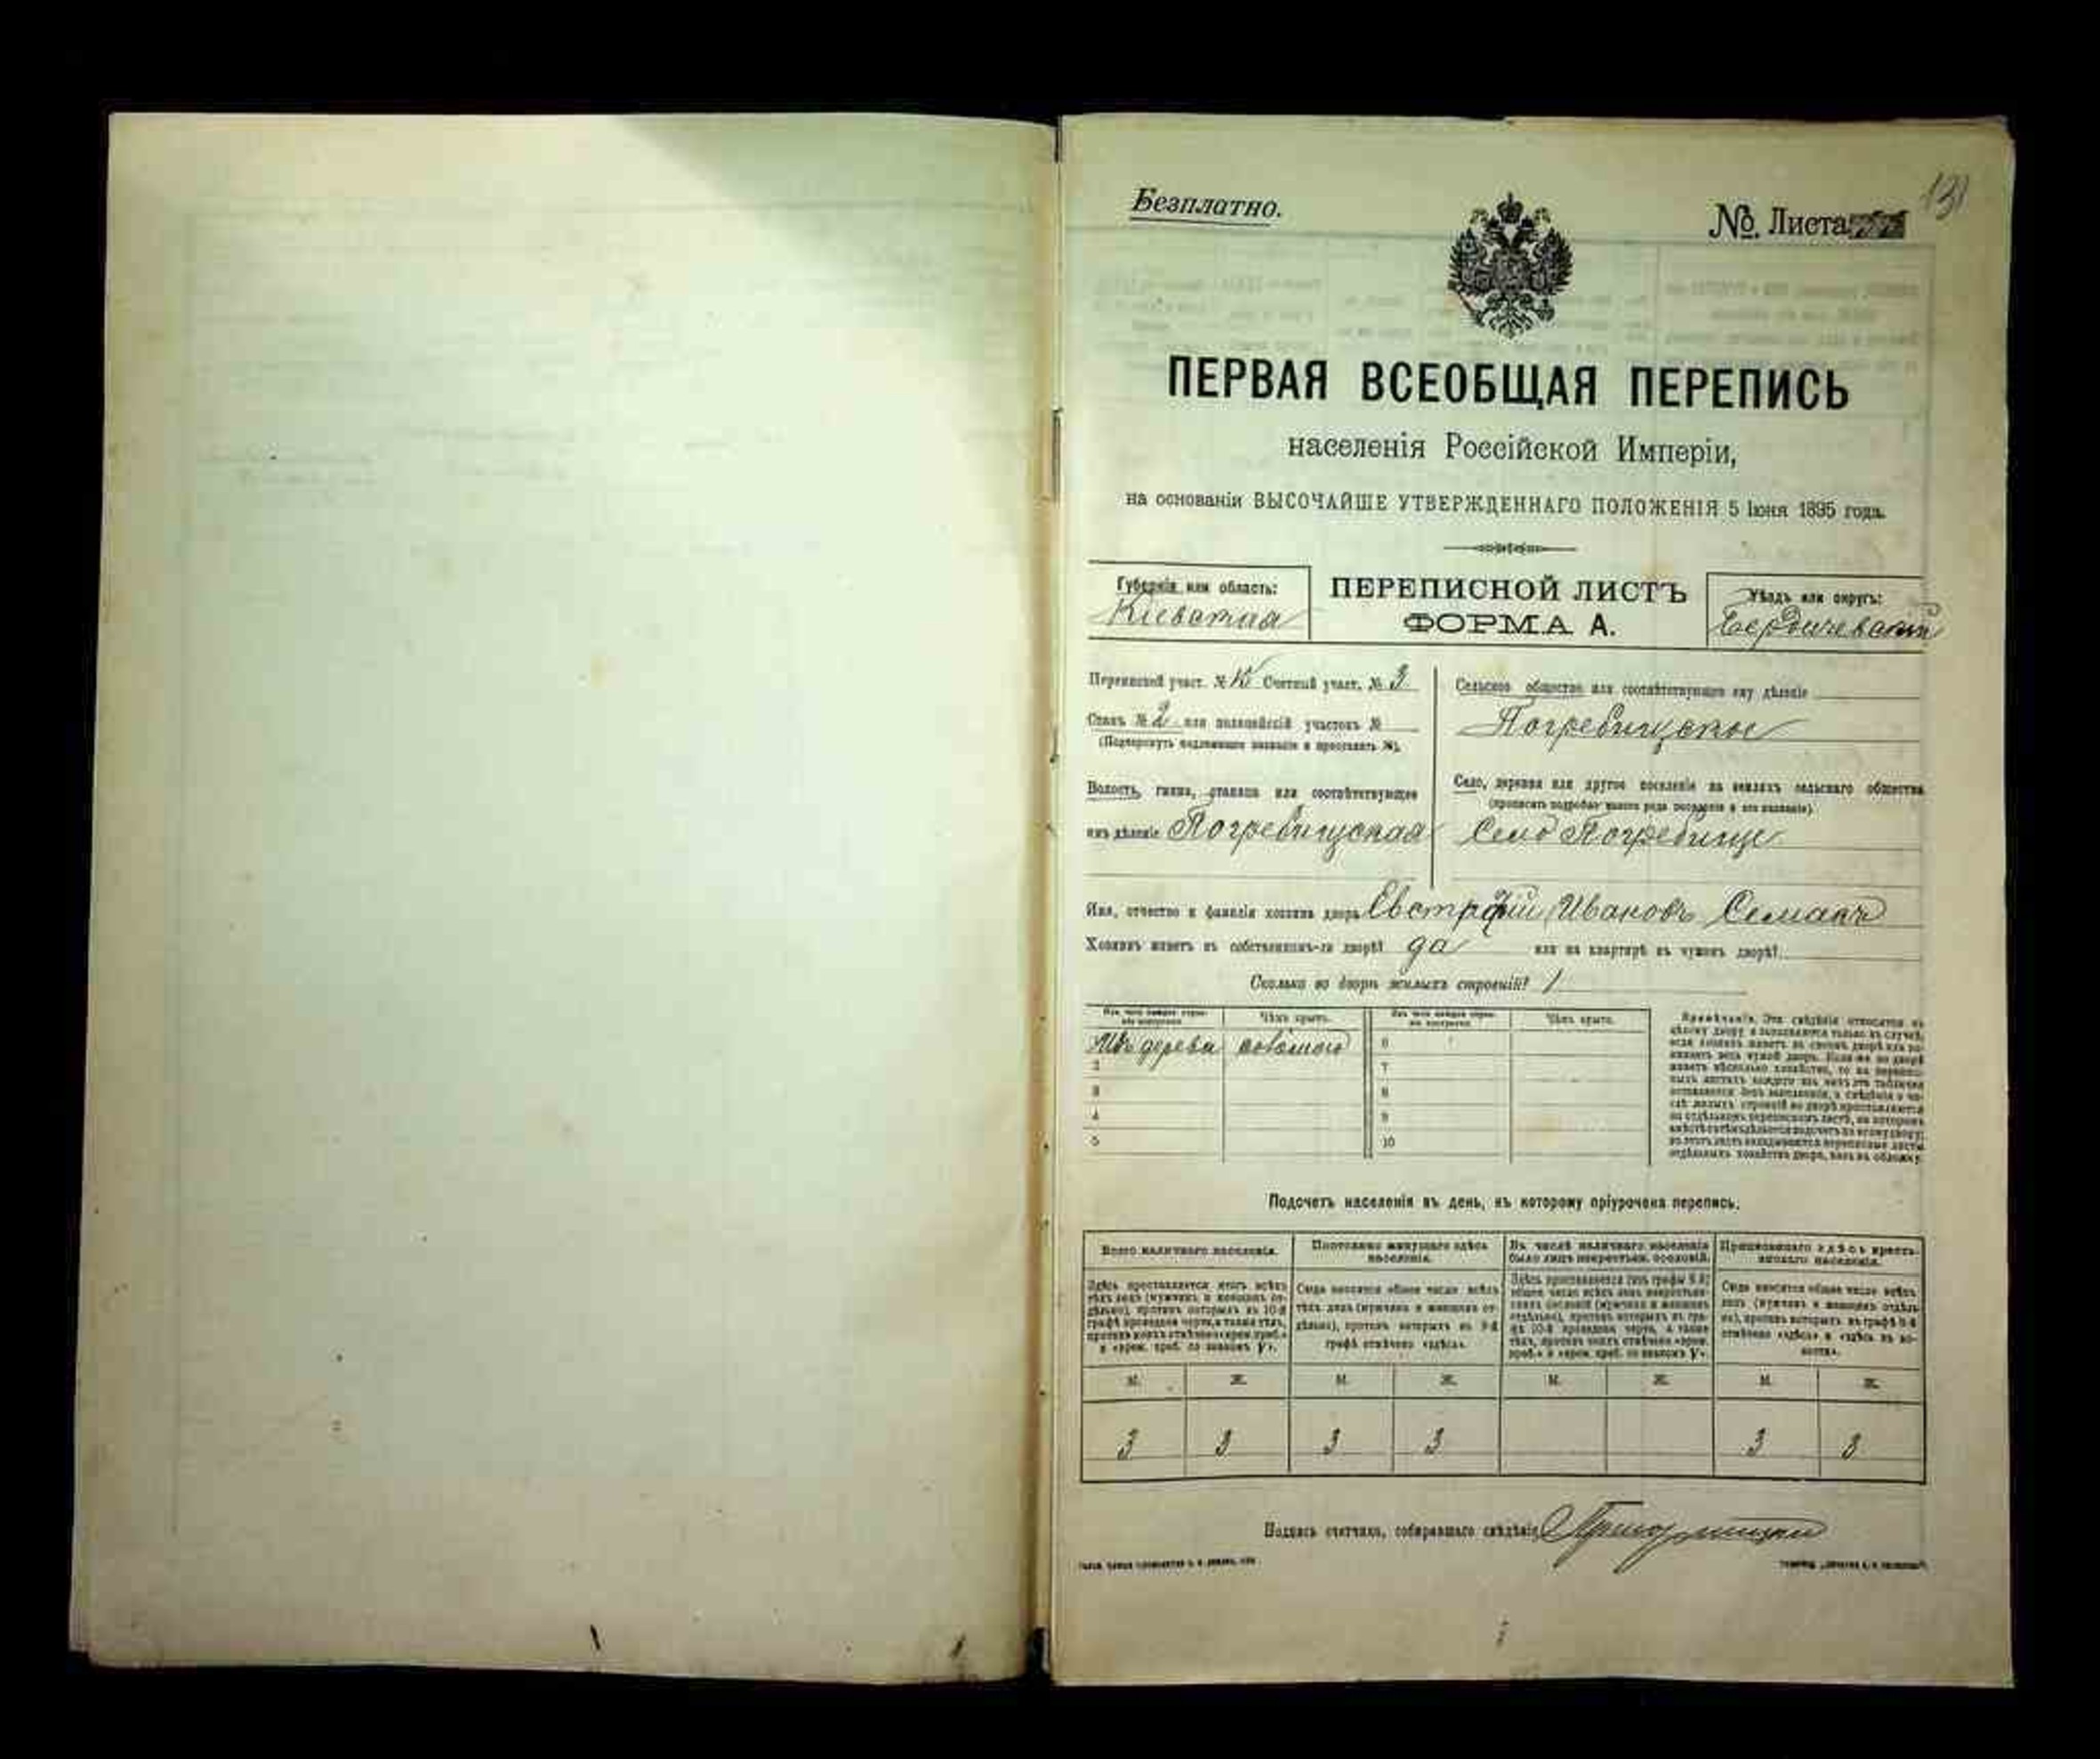 Безплатно.
№ Листа
131
ПЕРВАЯ ВСЕОБЩАЯ ПЕРЕПИСЬ
населенія Россійской Имперіи,
на основаніи ВЫСОЧАЙШЕ УТВЕРЖДЕННАГО ПОЛОЖЕНІЯ 5 Іюня 1895 года.
Губернія или область:
Кіевская
ПЕРЕПИСНОЙ ЛИСТЪ
ФОРМА А.
Уѣздъ или округъ:
Бердичевскій
Переписной участ. № Счетный участ. № 3
Станъ № 2 или полицейскій участокъ №
(Подчеркнуть надлежащее названіе и проставить №).
Волость, гмина, станица или соотвѣтствующее
имъ дѣленіе Погребищская
Сельское общество или соотвѣтствующее ему дѣленіе
Погребищское
Село, деревня или другое поселеніе на земляхъ сельскаго общества
(прописать подробно какого рода поселеніе и его названіе).
Село Погребище
Имя, отчество и фамилія хозяина двора Евстрафій Ивановъ Семакъ
Хозяинъ живетъ въ собственномъ-ли дворѣ? да или на квартирѣ въ чужомъ дворѣ?
Сколько во дворѣ жилыхъ строеній? 1
Изъ чего каждое строеніе построено. Чѣмъ крыто. Изъ чего каждое строеніе построено. Чѣмъ крыто.
Изъ дерева соломою 6
2 7
3 8
4 9
5 10
Примѣчаніе. Эти свѣдѣнія относятся къ
цѣлому двору и заполняются только въ случаѣ,
если хозяинъ живетъ въ своемъ дворѣ или за-
нимаетъ весь чужой дворъ. Если же во дворѣ
живетъ нѣсколько хозяйствъ, то на перепис-
ныхъ листахъ каждаго изъ нихъ эта табличка
оставляется безъ заполненія, а свѣдѣнія о чи-
слѣ жилыхъ строеній во дворѣ проставляются
на отдѣльномъ переписномъ листѣ, на которомъ
Подсчетъ населенія въ день, къ которому пріурочена перепись.
Всего наличнаго населенія.
Здѣсь проставляется итогъ всѣхъ
тѣхъ лицъ (мужчинъ и женщинъ от-
дѣльно), противъ которыхъ въ 10-й
графѣ проведена черта, а также тѣхъ,
противъ коихъ отмѣчено «врем. преб.»
и «врем. преб. со знакомъ V».
Постоянно живущаго здѣсь
населенія.
Сюда вносится общее число всѣхъ
тѣхъ лицъ (мужчинъ и женщинъ от-
дѣльно), противъ которыхъ въ 9-й
графѣ отмѣчено «здѣсь».
Въ числѣ наличнаго населенія
было лицъ некрестьян. сословій.
Приписаннаго здѣсь кресть-
янскаго населенія.
Сюда вносится общее число всѣхъ
лицъ (мужчинъ и женщинъ отдѣль-
но), противъ которыхъ въ графѣ 8-й
отмѣчено «здѣсь» и «здѣсь въ во-
лости».
М. Ж. М. Ж. М. Ж. М. Ж.
3 3 3 3 3 3
Подпись счетчика, собиравшаго свѣдѣнія